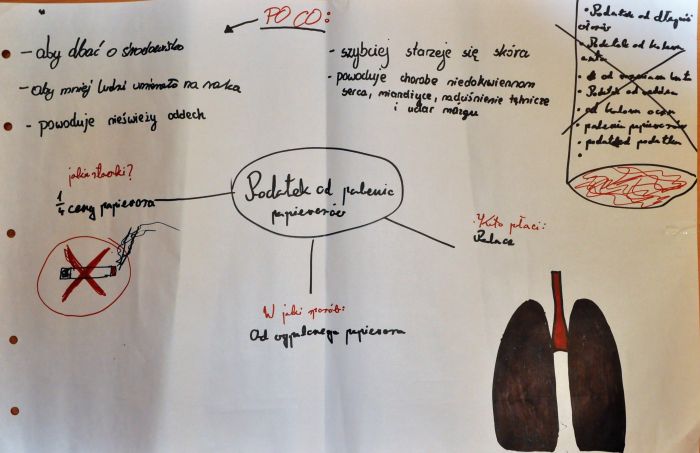 PO CO:
- aby dbać o środowisko
- aby mniej ludzi umierało na raka
- powoduje nieświeży oddech
- szybciej starzeje się skóra
- powoduje chorobę niedokrwienną
serca, miażdżyce, nadciśnienie tętnicze
i udar mózgu
• Podatek od długości
• Podatek od koloru
• Podatek od
• od koloru oczu
• palenia papierosów
• podatek podatku
jakie stawki?
1/4 ceny papierosa
Podatek od palenia
papierosów
Kto płaci:
Palacz
W jaki sposób:
Od wypalonego papierosa